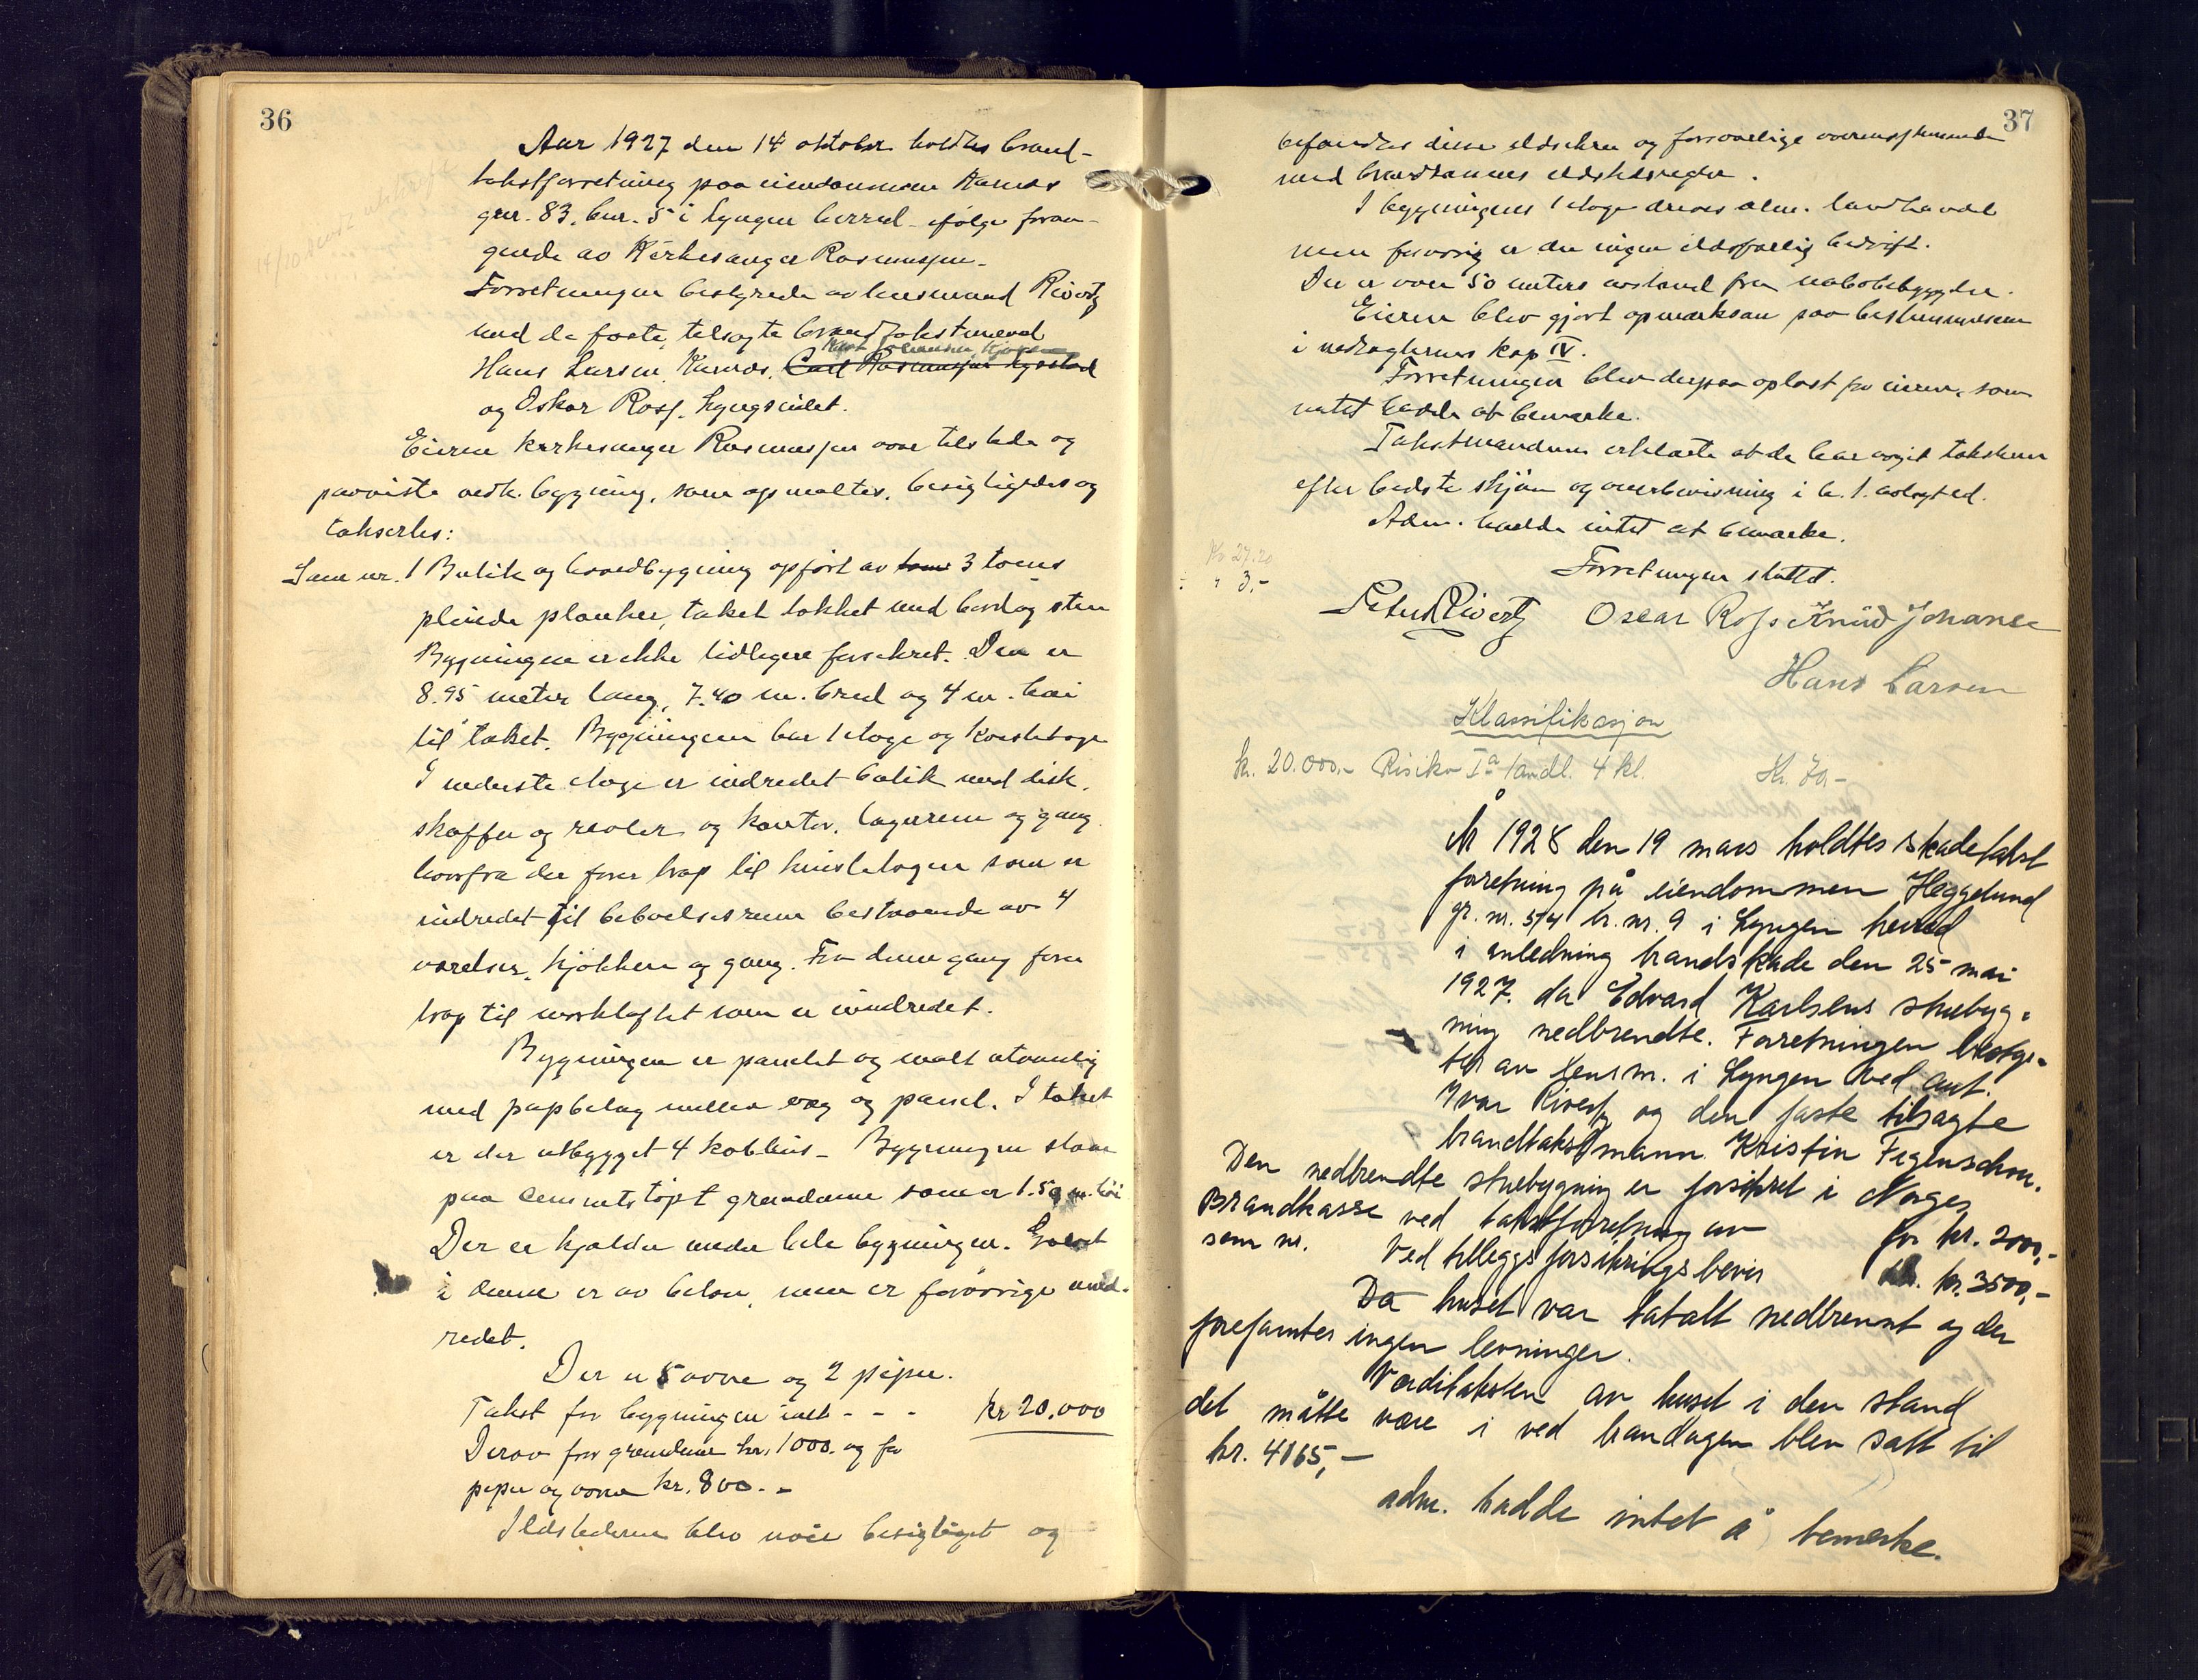 36
Aar 1927 den 14 oktober holdtes brand-
takstforretning paa eiendommen Karnes
gnr. 83. bnr. 5 i Lyngen herred ifølge foran-
gende av Kirkesanger Rasmussen.
Forretningen bestyredes av lensmand Rivertz
med de faste, tilsagte brandtakstmænd
Hans Larsen, Karnes, Carl Rasmussen
og Oskar Ross, Lyngseidet.
Eieren kirkesanger Rasmussen var tilstede og
paaviste vedk. bygning, som opmaaltes, besigtigedes og
taksertes:
Som nr. 1 Butik og hovedbygning opført av 3 toms
pløiede planker, taket tækket med bord og sten
Bygningen er ikke tidligere forsikret. Den er
8.95 meter lang, 7.40 m. bred og 4 m. høi
til taket. Bygningen har 1 etage og kvistetage
I nederste etage er indredet butik med disk,
skuffer og reoler og kontor, lagerrum og gang
hvorfra der fører trap til kvistetagen som er
indredet til beboelsesrum bestaaende av 4
værelser, kjøkken og gang. Fra denne gang fører
trap til mørkloftet som er uindredet.
Bygningen er panelet og malt utvendig
med papbelag mellem væg og panel. I taket
er der utbygget 4 kobhus. Bygningen staar
paa cementstøpt grundmur som er 1.50 m. høi
Der er kjælder under hele bygningen. Gulvet
i denne er av beton, men er forøvrig uind-
redet.
Der er 5 ovne og 2 piper.
Takst for bygningen ialt - - - kr 20.000
Derav for grundmur kr. 1000. og for
piper og ovne kr. 800.-
Ildstederne blev nøie besigtiget og
37
befandtes disse ildsikre og forsvarlige overensstemmende
med brandkassens ildstedsregler.
I bygningens 1 etage drives alm. landhandel
men forøvrig er der ingen ildsfarlig bedrift.
Der er over 50 meters avstand fra nabobebyggelse.
Eieren blev gjort opmerksam paa bestemmelserne
i vedtægternes kap IV.
Forretningen blev derpaa oplæst for eieren, som
intet hadde at bemerke.
Takstmændene erklærte at de har avgit taksten
efter bedste skjøn og overbevisning i h. t. avlagt ed.
Adm. hadde intet at bemerke.
Kr 27.20
" 3,-
Forretningen sluttet.
Peter Rivertz Oscar Ross Knud Johansen
Hans Larsen
Klassifikasjon
kr. 20.000.- Risiko Ia landl. 4 kl. Kr. 70,-
År 1928 den 19 mars holdtes skadetakst
forretning på eiendommen Heggelund
gr. nr. 54 br. nr. 9 i Lyngen herred
i anledning brandskade den 25 mai
1927, da Edvard Karlsens stuebyg-
ning nedbrendte. Forretningen besty-
tes av lensm. i Lyngen ved ast.
Ivar Rivertz og den faste tilsagte
brandtakstmann Kristin Figenschou.
Den nedbrendte stuebygning er forsikret i Norges
Brandkasse ved takstforretning av for kr. 2000,-
som nr. Ved tilleggsforsikringsbevis kr. 3500,-
Da huset var totalt nedbrennt og der
forefantes ingen levninger.
Verditaksten av huset i den stand
det måtte være i ved brandagen blev satt til
kr. 4165,-
adm. hadde intet å bemerke.